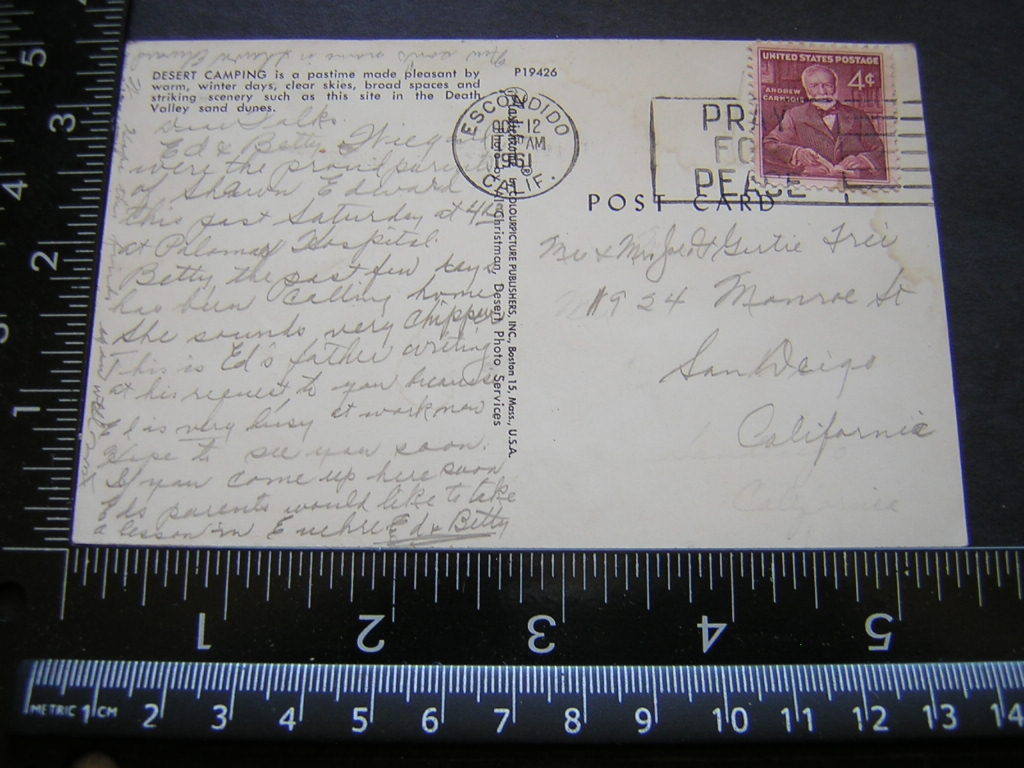 DESERT CAMPING is a pastime made pleasant by
warm, winter days, clear skies, broad spaces and
striking scenery such as this site in the Death
Valley sand dunes.
P19426
Dear Folks
Ed & Betty
were the proud
of Shawn Edward
this past Saturday at
at Palomar Hospital.
Betty the past few days
has been calling home
She sounds very chipper
This is Ed's father writing
at his request to you because
is very busy at work now
Hope to see you soon.
If you come up here soon
Eds parents would like to take
lesson in Euchre Ed & Betty
ESCONDIDO
12
AM
1961
CALIF.
PRAY
FOR
PEACE
UNITED STATES POSTAGE
4¢
ANDREW
CARNEGIE
POST CARD
by COLOURPICTURE PUBLISHERS, INC., Boston 15, Mass., U.S.A.
Christman, Desert Photo Services
Mr & Mrs Joe & Gertie Frei
1924 Monroe St
San Deigo
California
California
1 2 3 4 5
1 2 3 4 5
METRIC 1 CM 2 3 4 5 6 7 8 9 10 11 12 13 14